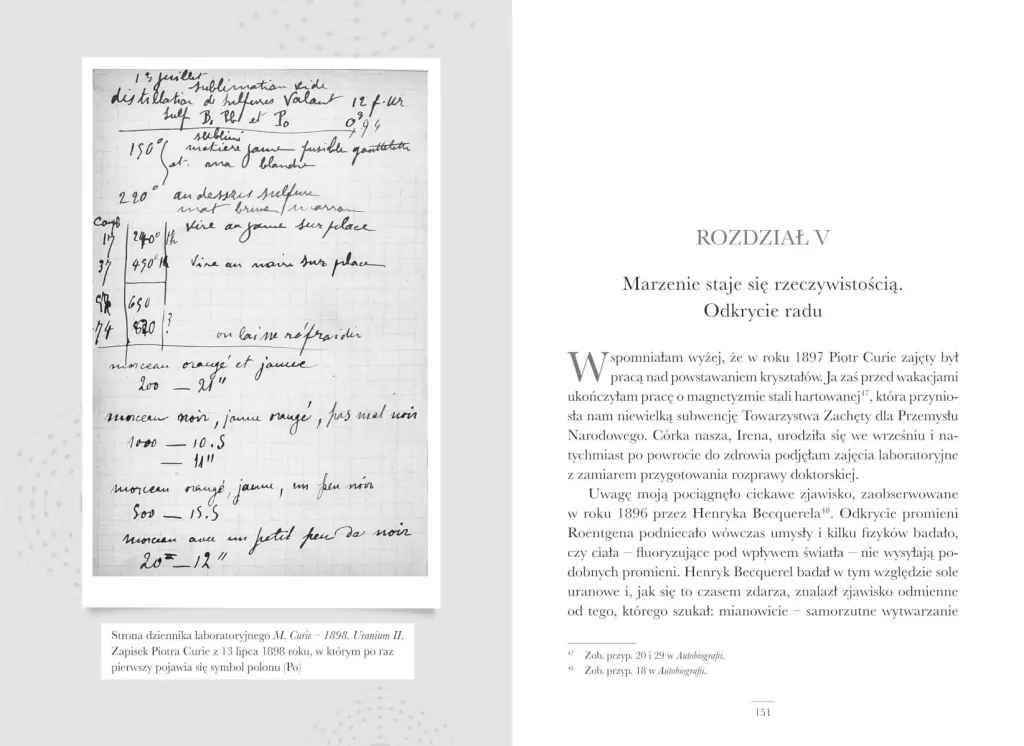 13 juillet
sublimation vide
distillation de sulfures Valant 12 f. Ur
sulf Bi Pb et Po
sublimé
150° matière jaune fusible
et blanche
220° au dessus sulfure
mat brune marron
240° vire au jaune sur place
37 450° vire au noir sur place
650
74 ?
on laisse refroidir
morceau orangé et jaune
200 — 21"
morceau noir, jaune orangé, pas mal noir
1000 — 10.5
— 11"
morceau orangé, jaune, un peu noir
500 — 15.5
morceau avec un petit peu de noir
20 — 12"
Strona dziennika laboratoryjnego M. Curie – 1898. Uranium II.
Zapisek Piotra Curie z 13 lipca 1898 roku, w którym po raz
pierwszy pojawia się symbol polonu (Po)
ROZDZIAŁ V
Marzenie staje się rzeczywistością.
Odkrycie radu
Wspomniałam wyżej, że w roku 1897 Piotr Curie zajęty był
pracą nad powstawaniem kryształów. Ja zaś przed wakacjami
ukończyłam pracę o magnetyzmie stali hartowanej⁴⁷, która przynio-
sła nam niewielką subwencję Towarzystwa Zachęty dla Przemysłu
Narodowego. Córka nasza, Irena, urodziła się we wrześniu i na-
tychmiast po powrocie do zdrowia podjęłam zajęcia laboratoryjne
z zamiarem przygotowania rozprawy doktorskiej.
Uwagę moją pociągnęło ciekawe zjawisko, zaobserwowane
w roku 1896 przez Henryka Becquerela⁴⁸. Odkrycie promieni
Roentgena podniecało wówczas umysły i kilku fizyków badało,
czy ciała – fluoryzujące pod wpływem światła – nie wysyłają po-
dobnych promieni. Henryk Becquerel badał w tym względzie sole
uranowe i, jak się to czasem zdarza, znalazł zjawisko odmienne
od tego, którego szukał: mianowicie – samorzutne wytwarzanie
⁴⁷ Zob. przyp. 20 i 29 w Autobiografii.
⁴⁸ Zob. przyp. 18 w Autobiografii.
151